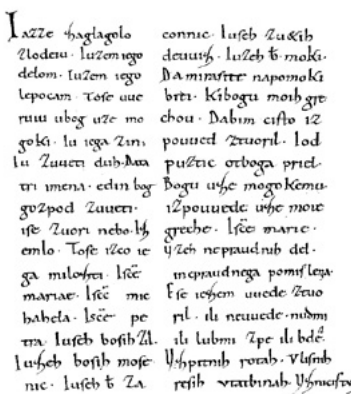 Iazze zaglagolo
zlodeiu · Iuzem iego
delom · Iuzem iego
lepocam · Tose uue
ruiu ubog uze mo
goki · Iu iega Zin ·
Iu Zuueti duh · Data
tri imena · edin bog
gozpod Zuueti ·
ise Zuori nebo · Iz
emlo · Tose izco ie
ga milozti · Iscē
mariae · Iscē mic
hahela · Iscē pe
tra Iuseh bosih Zil ·
Iuzeh bosih mose
nic · Iuzeh b̄ Za
connic · Iuseh Zuetih
deuuiz · Iuzeh b̄ · moki ·
Da mirasite napomoki
biti · Kibogu moih gre
chou · Dabim cisto iz
pouued ztuoril · Iod
puztic otboga priel ·
Bogu uze mogokemu
izpouuede uze moie
greche · Iscē marie ·
Uzeh nepraudnih del ·
inepraudnega pomislenia ·
Ese iezem uuede ztuo
ril · ili neuuede · nudmi
ili lubmi zpe ili bdē ·
Uzpitnih rotah · Vlisnih
resih vtatbinah ·